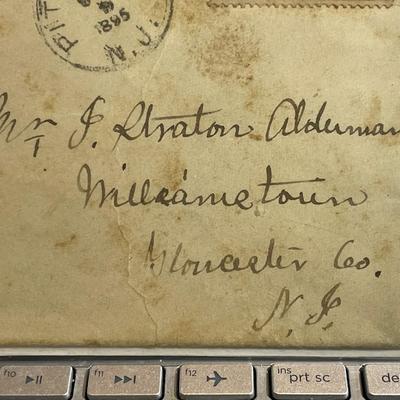 PIT
1895
N.J.
Mr J. Straton Alderman
Williamstown
Gloucester Co.
N.J.
f10
f11
f12
ins
prt sc
de